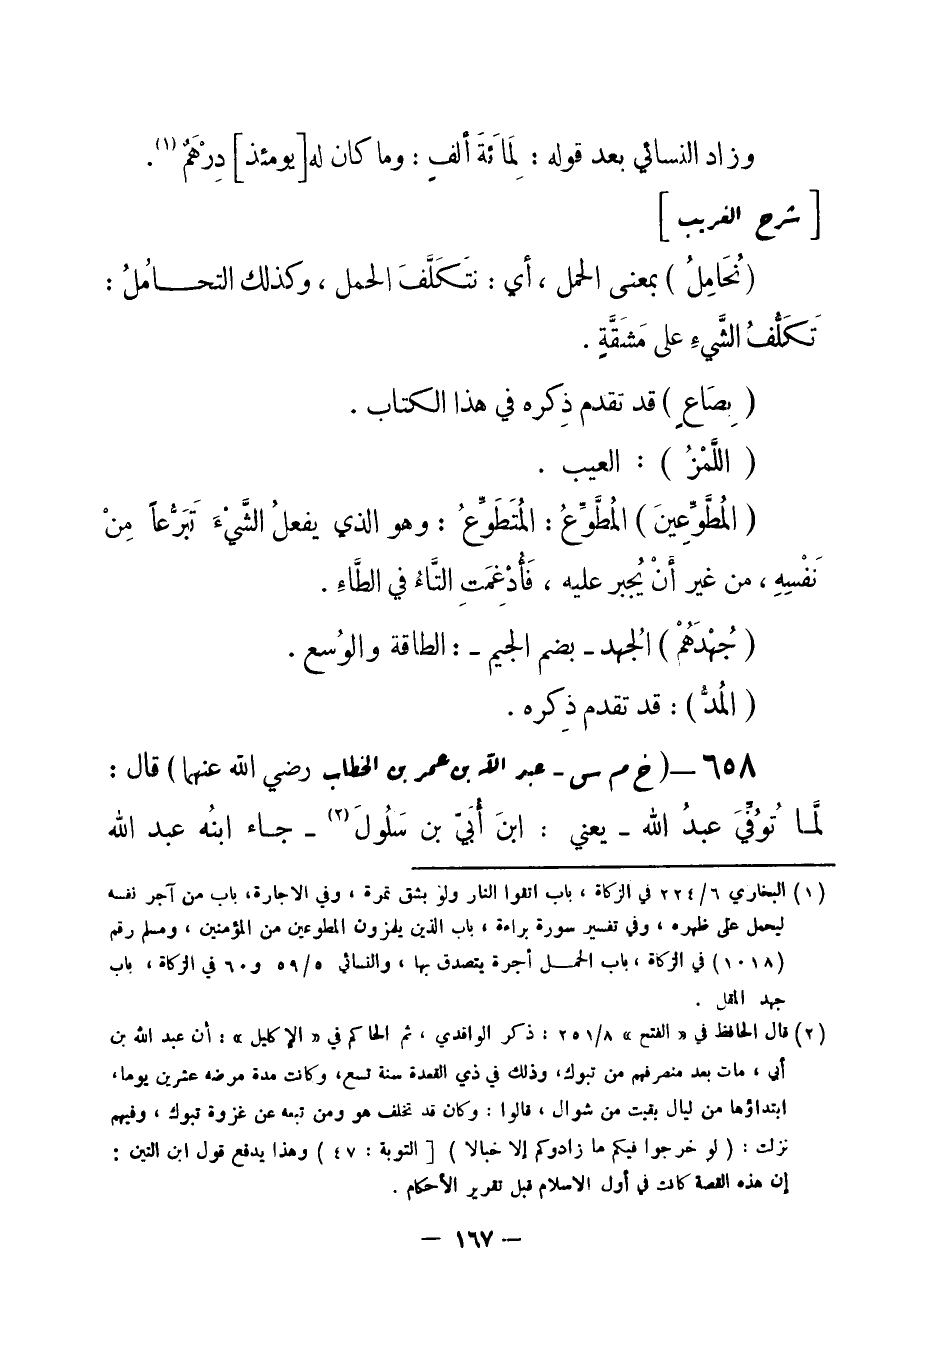 وزاد النسائي بعد قوله : لِمَائةَ ألفٍ : وما كان له[يومئذ] دِرْهَمٌ (١).
[ شرح الغريب ]
( نُحَامِلُ ) بمعنى الحمل ، أي : نتَكَلَّفَ الحمل ، وكذلك التحــامُلُ :
تَكَلُّفُ الشَّيءِ على مَشَقَّةٍ .
( بِصَاعٍ ) قد تقدم ذِكره في هذا الكتاب .
( اللَّمْزُ ) : العيب .
( المُطَّوِّعِينَ ) المُطَّوِّعُ : المُتَطَوِّعُ : وهو الذي يفعلُ الشَّيْءَ تَبَرُّعاً مِنْ
نَفْسِهِ ، من غير أَنْ يُجبر عليه ، فَأُدْغِمَتِ التَّاءُ في الطَّاءِ .
( جُهْدَهُمْ ) الجُهد ـ بضم الجيم ـ : الطاقة والوُسع .
( المُدُّ ) : قد تقدم ذِكره .
٦٥٨ ـ (خ م س ـ عبد الله بن عمر بن الخطاب رضي الله عنهما ) قال :
لمَّا تُوُفِّيَ عبدُ الله ـ يعني : ابنَ أُبَيّ بن سَلُولَ (٢) ـ جاء ابنُه عبد الله
(١) البخاري ٢٢٤/٦ في الزكاة ، باب اتقوا النار ولو بشق تمرة ، وفي الاجارة، باب من آجر نفسه
ليحمل على ظهره ، وفي تفسير سورة براءة ، باب الذين يلمزون المطوعين من المؤمنين ، ومسلم رقم
(١٠١٨) في الزكاة ، باب الحمــل أجرة يتصدق بها ، والنسائي ٥٩/٥ و٦٠ في الزكاة ، باب
جهد المقل .
(٢) قال الحافظ في « الفتح » ٢٥١/٨ : ذكر الواقدي ، ثم الحاكم في « الإكليل » : أن عبد الله بن
أبي ، مات بعد منصرفهم من تبوك، وذلك في ذي القعدة سنة تسع، وكانت مدة مرضه عشرين يوما،
ابتداؤها من ليال بقيت من شوال ، قالوا : وكان قد تخلف هو ومن تبعه عن غزوة تبوك ، وفيهم
نزلت : ( لو خرجوا فيكم ما زادوكم إلا خبالا ) [ التوبة : ٤٧ ) وهذا يدفع قول ابن التين :
إن هذه القصة كانت في أول الاسلام قبل تقرير الأحكام .
– ١٦٧ –